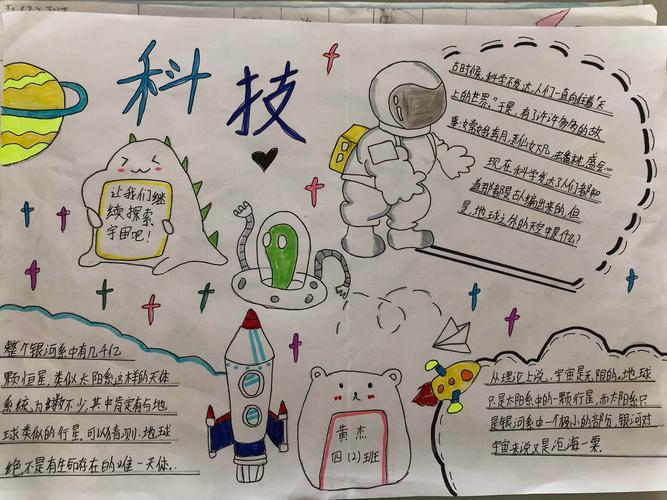 科技
古时候,科学不发达,人们一直向往着"天
上的世界,"于是,有了许许多多的故
事:女常娥奔月,美仙女下凡,
现在科学发达了人们都知
道那都是古人编出来的,但
是,地球之外的天空中是什么?
让我们继
续探索
宇宙吧!
整个银河系中有几千亿
颗恒星,类似太阳系这样的天体
系统,为数不少,其中肯定有与地
球类似的行星,可以看测:地球
绝不是有生命存在的唯一天体。
黄杰
四(2)班
从理论上说,宇宙是无限的。地球
只是太阳系中的一颗行星,而太阳系只
是银河系中一个极小的部份,银河对
宇宙来说又是沧海一栗.